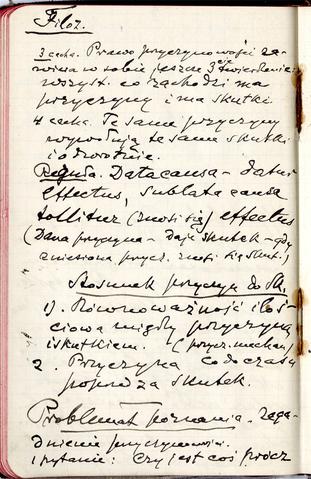 Filoz.
3 cecha. Prawo przyczynowości za-
wiera w sobie jeszcze 3cie twierdzenie
wszyst. co zachodzi ma
przyczyny i ma skutki.
4 cecha. Te same przyczyny
wywołują te same skutki
i odwrotnie.
Reguła. Data causa - datur
effectus, sublata causa
tollitur (znosi się) effectus
(Dana przyczyna - daje skutek - gdy
zniesiona przycz. znosi się skut.)
Stosunek przyczyn do sk.
1). Równoważność iloś-
ciowa między przyczyną
i skutkiem. (przycz. mechan.)
2. Przyczyna co do czasu
poprzedza skutek.
Problemat poznania. Zaga-
dnienie przyczynowości.
1 pytanie: Czy jest coś prócz